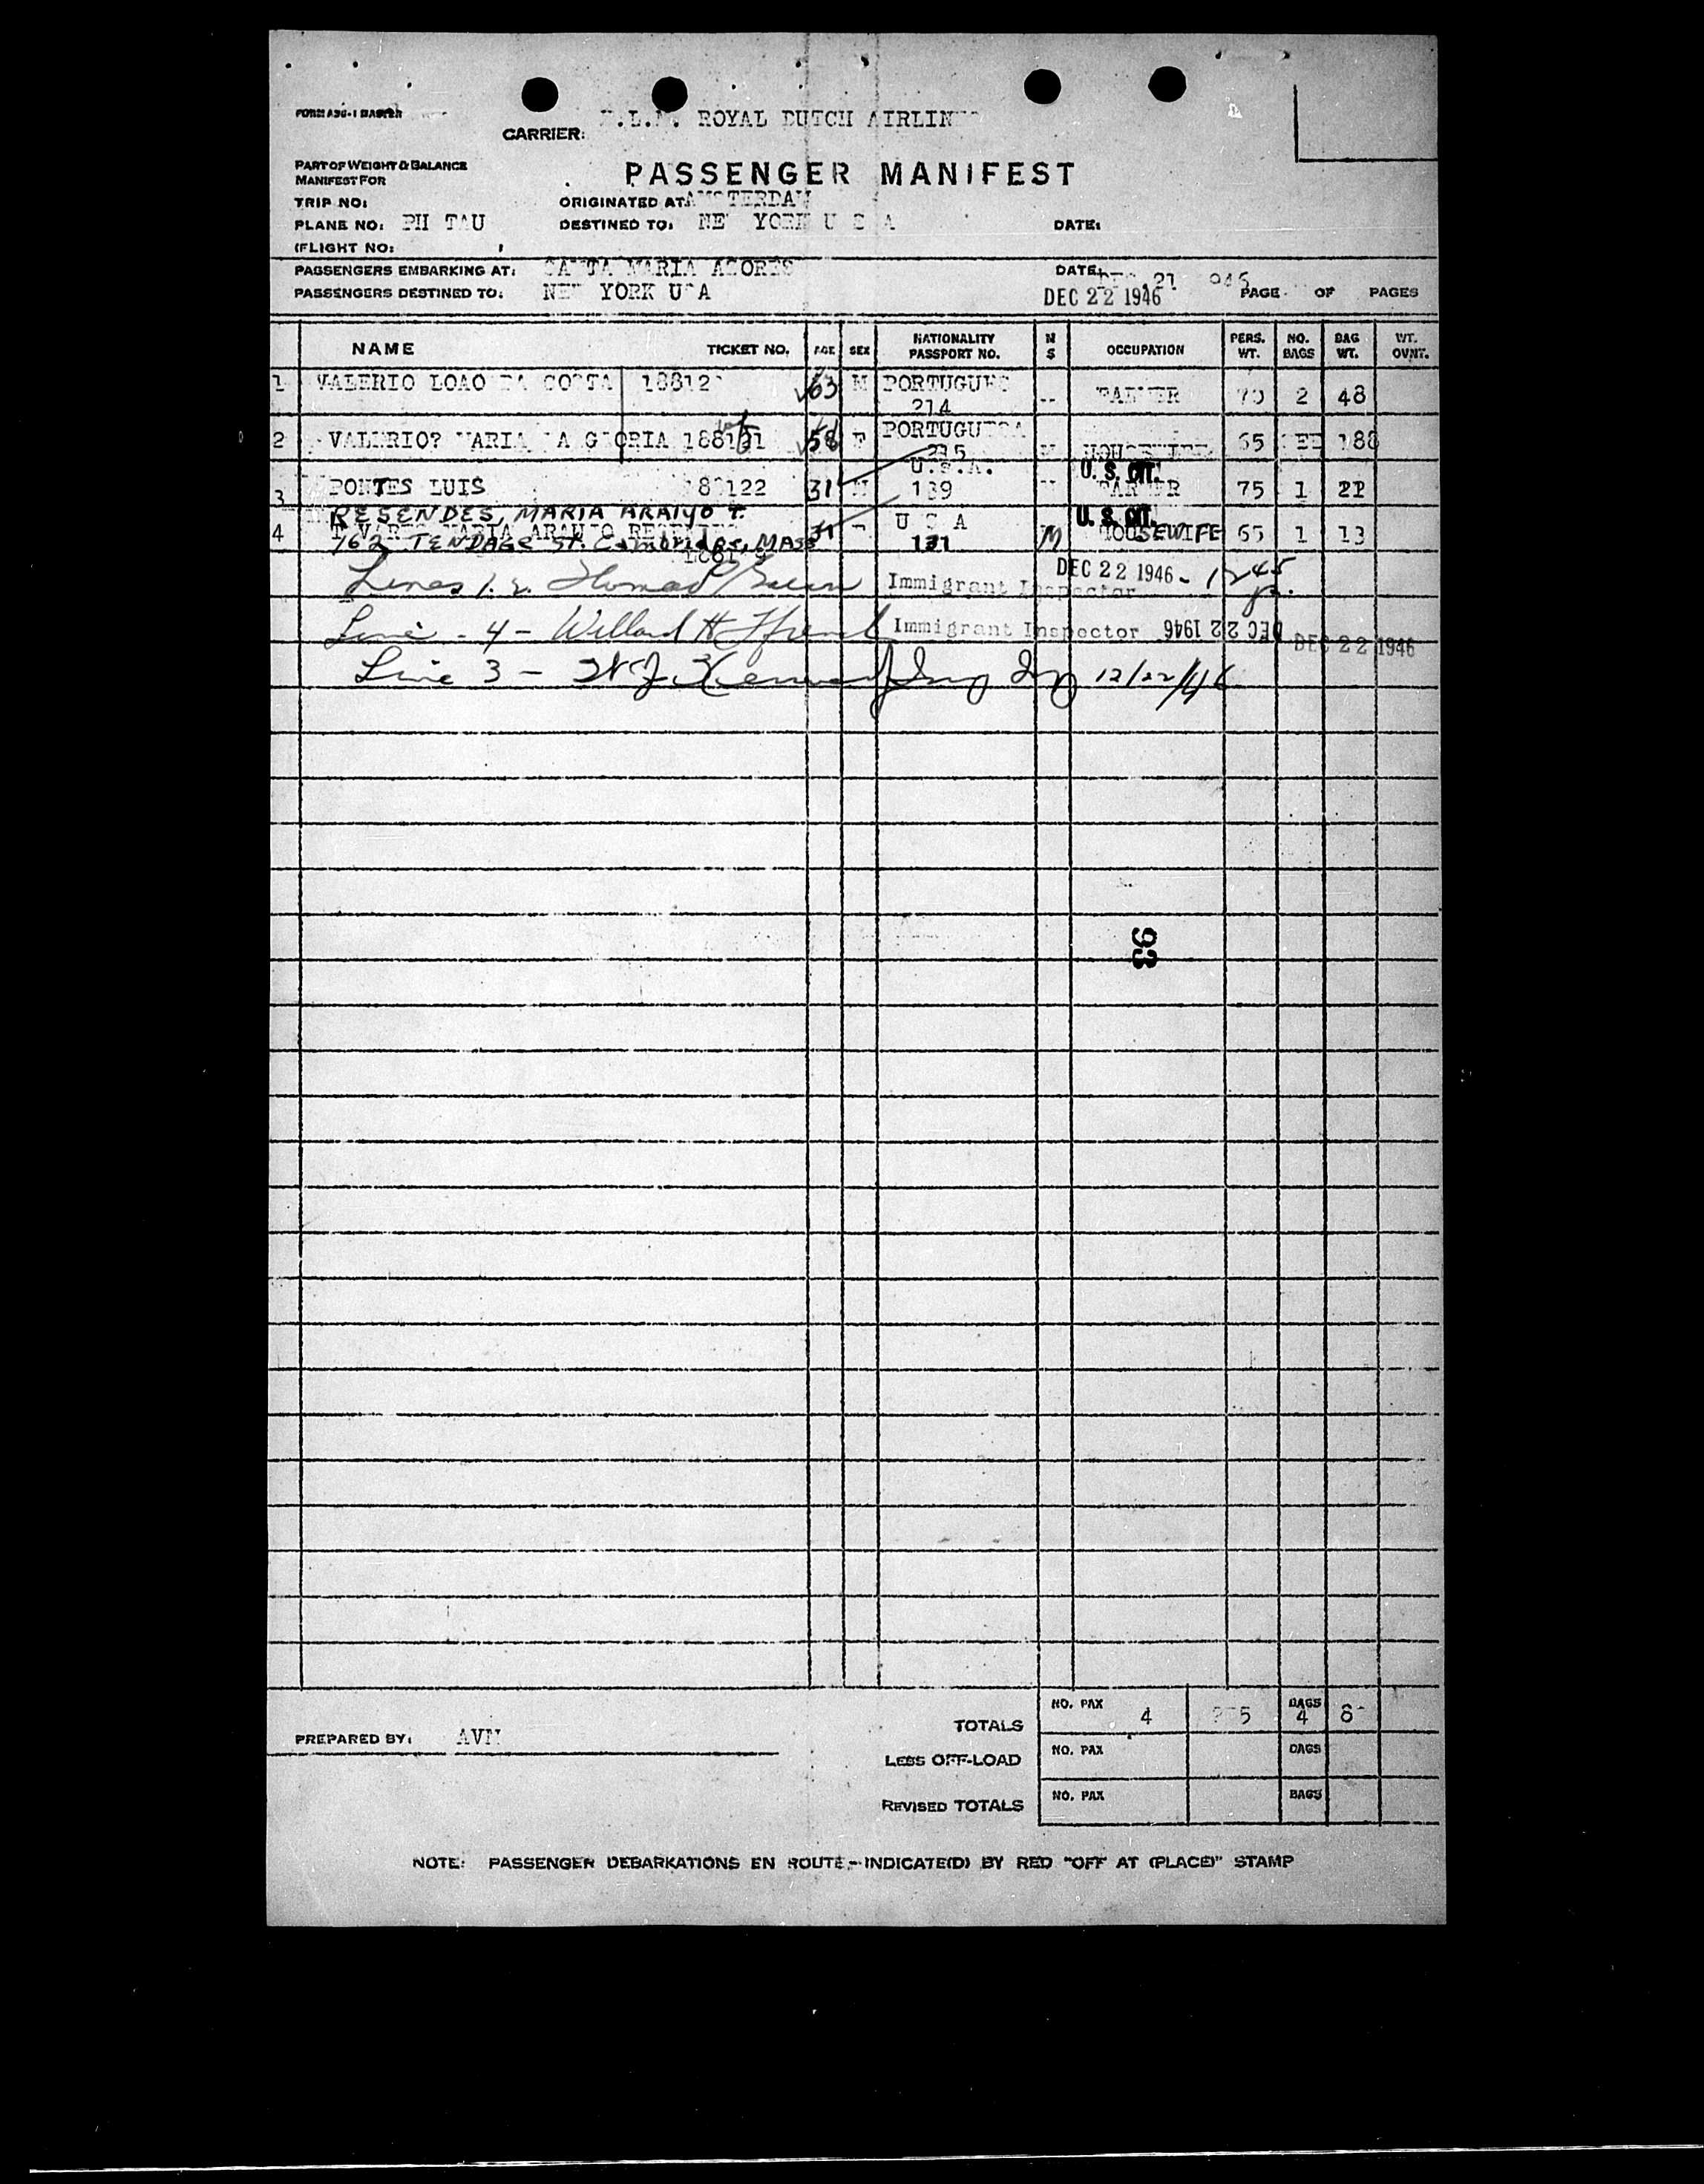 FORM A36-1 MASTER
CARRIER: K.L.M. ROYAL DUTCH AIRLINES
PART OF WEIGHT & BALANCE
MANIFEST FOR
PASSENGER MANIFEST
TRIP NO: ORIGINATED AT: AMSTERDAM
PLANE NO: PH TAU DESTINED TO: NEW YORK U S A DATE:
(FLIGHT NO:
PASSENGERS EMBARKING AT: SANTA MARIA ACORES DATE: DEC 21 946
PASSENGERS DESTINED TO: NEW YORK USA DEC 22 1946 PAGE OF PAGES
NAME TICKET NO. AGE SEX NATIONALITY PASSPORT NO. M S OCCUPATION PERS. WT. NO. BAGS BAG WT. WT. OVNT.
1 VALERIO LOAO DA COSTA 18812 63 M PORTUGUES 214 FARMER 70 2 48
2 VALERIO? MARIA DA GLORIA 188121 58 F PORTUGUESA 215 M HOUSEWIFE 65 188
3 PONTES LUIS 122 31 M U.S.A. 139 U. S. CIT. FARMER 75 1 22
RESENDES, MARIA ARAIYO T.
4 TAVARES MARIA ARAUJO RESENDES 31 F U S A 131 M U. S. CIT. HOUSEWIFE 65 1 13
162 ST. Cambridge, MASS
Lines 1. 2. Thomas Immigrant Inspector DEC 22 1946 - 1245
Line - 4 - Willard H Immigrant Inspector DEC 22 1946 DEC 22 1946
Line 3 - Imm Insp 12/22/46
93
TOTALS NO. PAX 4 BAGS 4
PREPARED BY: AVN
LESS OFF-LOAD NO. PAX BAGS
REVISED TOTALS NO. PAX BAGS
NOTE: PASSENGER DEBARKATIONS EN ROUTE - INDICATE(D) BY RED "OFF AT (PLACE)" STAMP